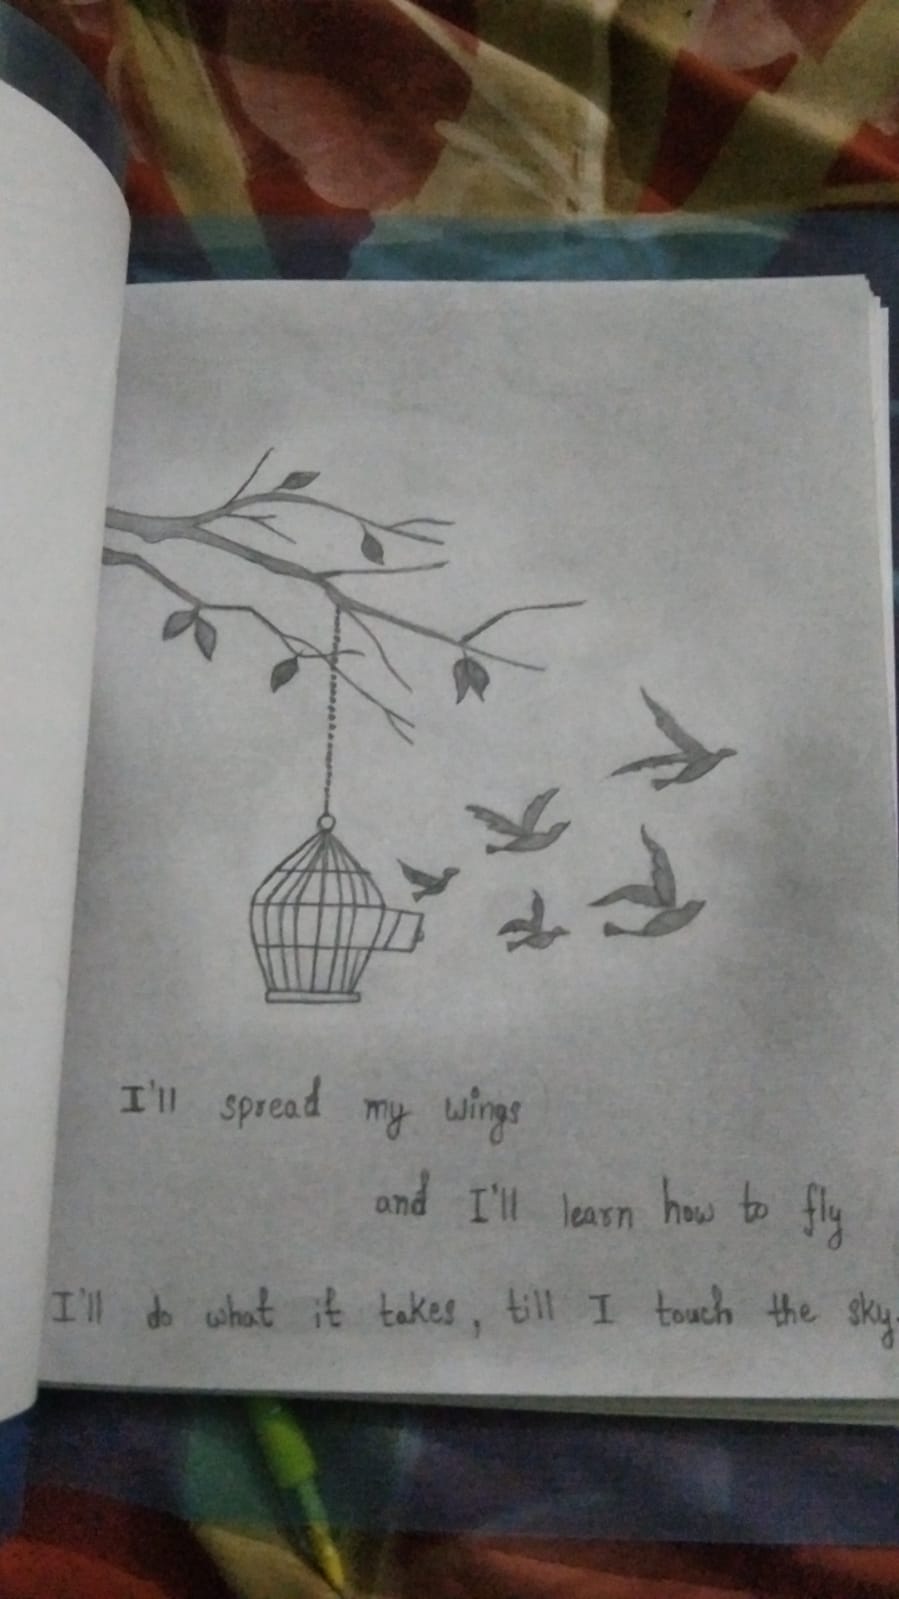 I'll spread my wings
and I'll learn how to fly
I'll do what it takes, till I touch the sky.